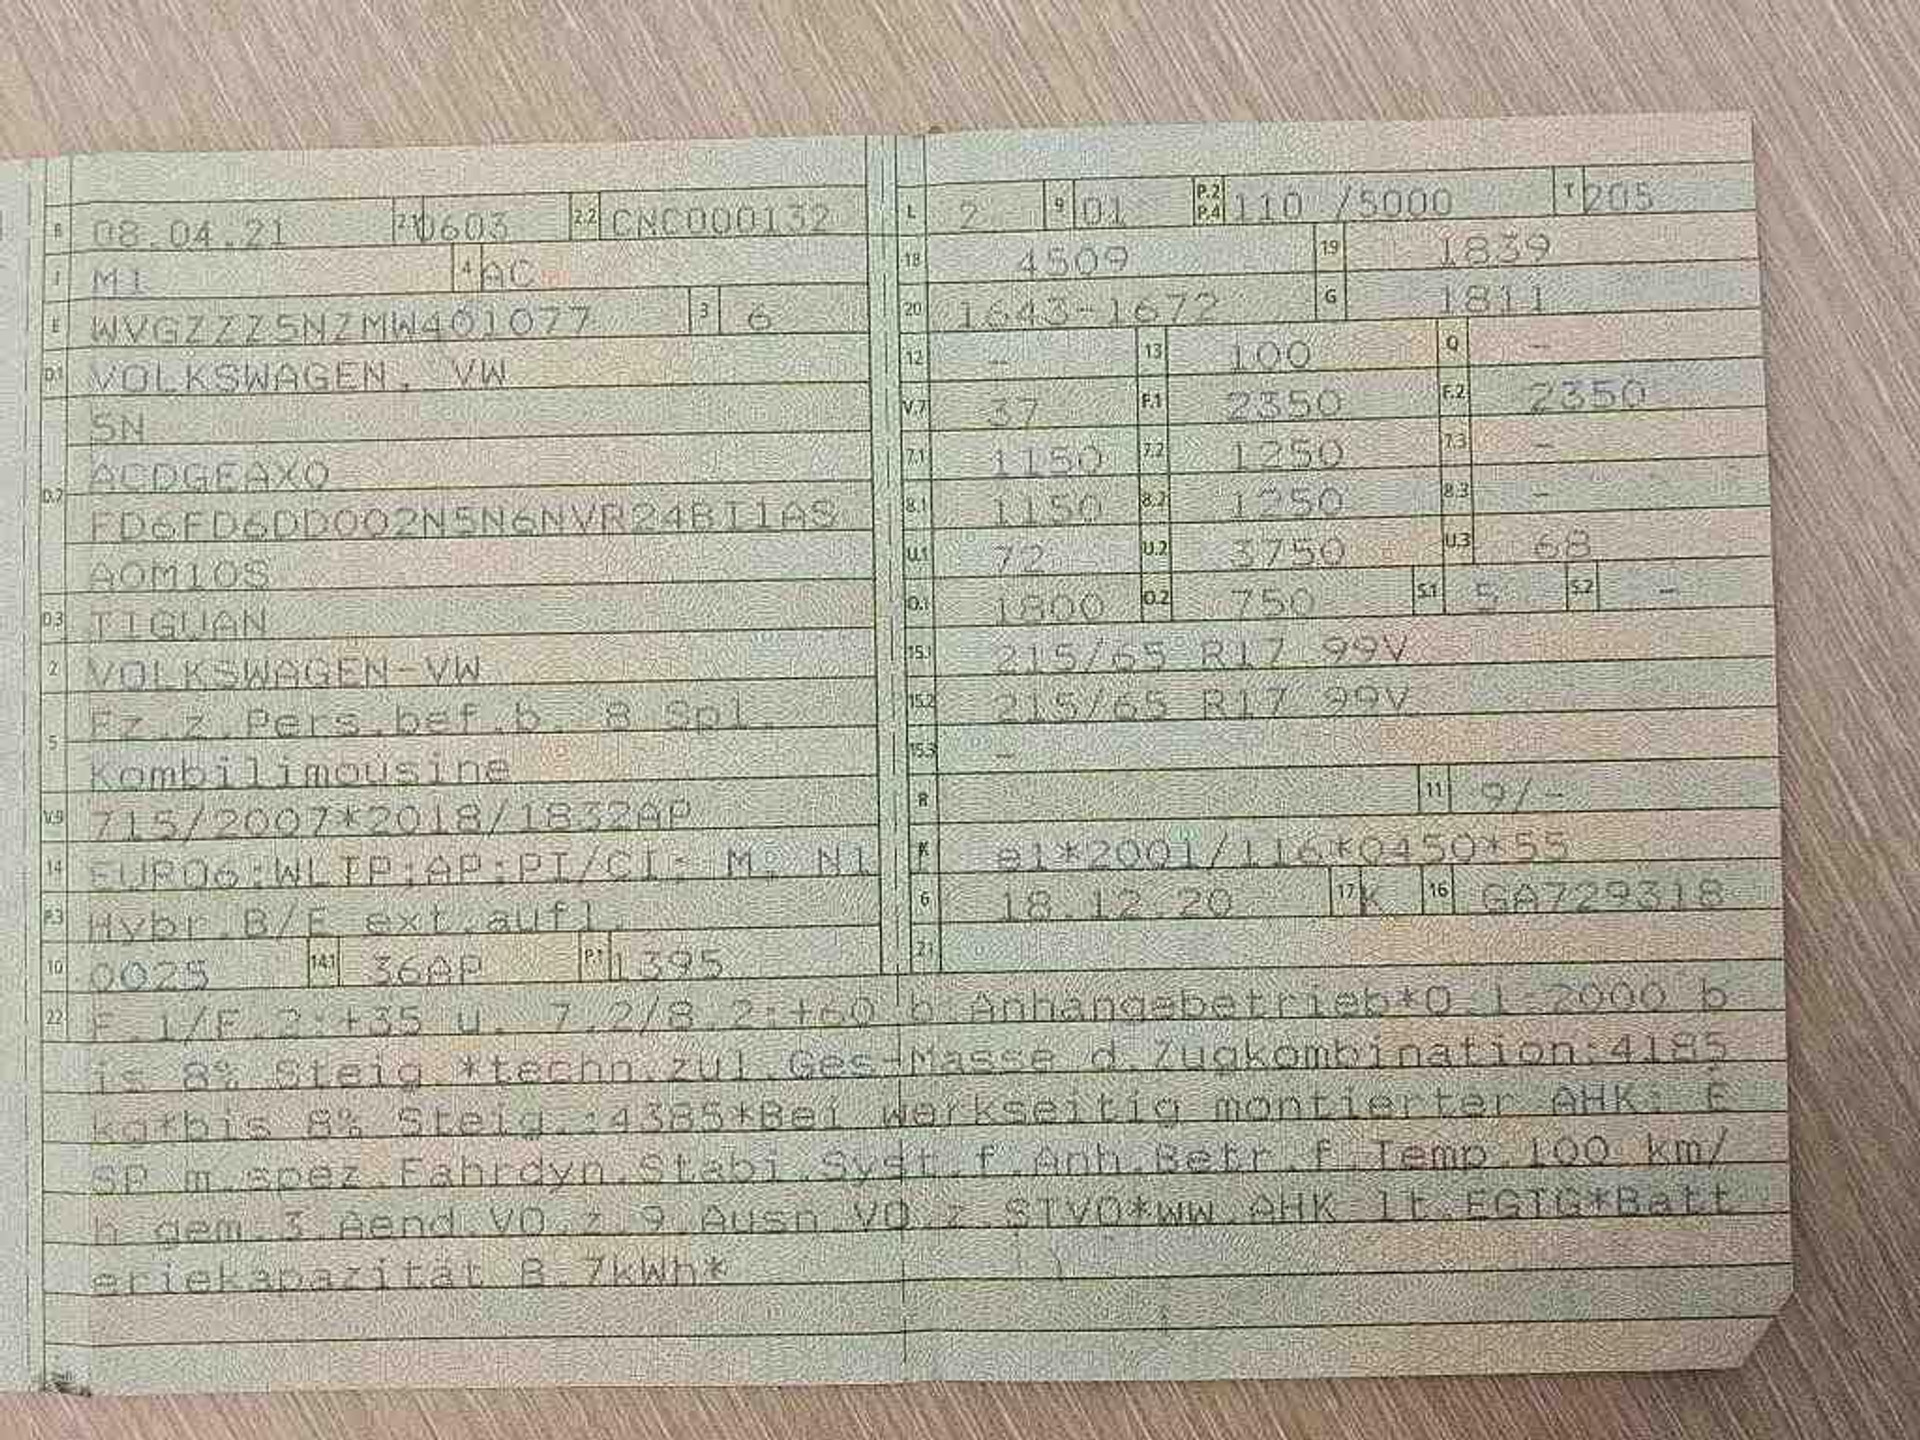 B 08.04.21 2.1 0603 2.2 CNC000132
J M1 4 AC
E WVGZZZ5NZMW401077 3 6
D.1 VOLKSWAGEN, VW
5N
ACDGEAX0
D.2 FD6FD6DD002N5N6NVR24BI1AS
A0M10S
D.3 TIGUAN
2 VOLKSWAGEN-VW
Fz.z.Pers.bef.b. 8 Spl.
5 Kombilimousine
V.9 715/2007*2018/1832AP
14 EURO6;WLTP;AP;PI/CI; M, N1
P.3 Hybr.B/E ext.aufl.
10 0025 14.1 36AP P.1 1395
L 2 9 01 P.2 P.4 110 /5000 T 205
18 4509 19 1839
20 1643-1672 G 1811
12 - 13 100 Q -
V.7 37 F.1 2350 F.2 2350
7.1 1150 7.2 1250 7.3 -
8.1 1150 8.2 1250 8.3 -
U.1 72 U.2 3750 U.3 68
O.1 1800 O.2 750 S.1 5 S.2 -
15.1 215/65 R17 99V
15.2 215/65 R17 99V
15.3 -
R 11 9/-
K e1*2001/116*0450*55
6 18.12.20 17 K 16 GA729318
21
22 F.1/F.2:+35 u. 7.2/8.2:+60 b.Anhängebetrieb*O.1:2000 b
is 8% Steig.*techn.zul.Ges-Masse d.Zugkombination:4185
kg*bis 8% Steig.:4385*Bei werkseitig montierter AHK: E
SP m.spez.Fahrdyn.Stabi.Syst.f.Anh.Betr.f.Temp.100 km/
h gem.3.Aend.VO.z.9.Ausn.VO.z.STVO*ww.AHK lt.EGTG*Batt
eriekapazität 8.7kWh*